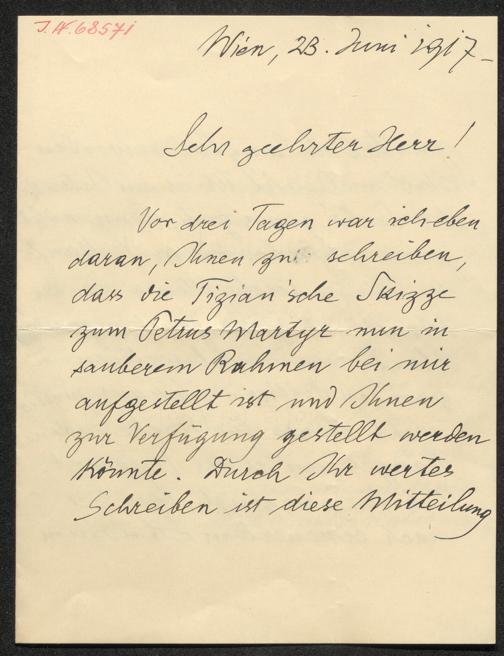 J.N. 68571
Wien, 23. Juni 1917
Sehr geehrter Herr!
Vor drei Tagen war ich eben
daran, Ihnen zu schreiben,
dass die Tizian'sche Skizze
zum Petrus Martyr nun in
sauberem Rahmen bei mir
aufgestellt ist und Ihnen
zur Verfügung gestellt werden
könnte. Durch Ihr wertes
Schreiben ist diese Mitteilung